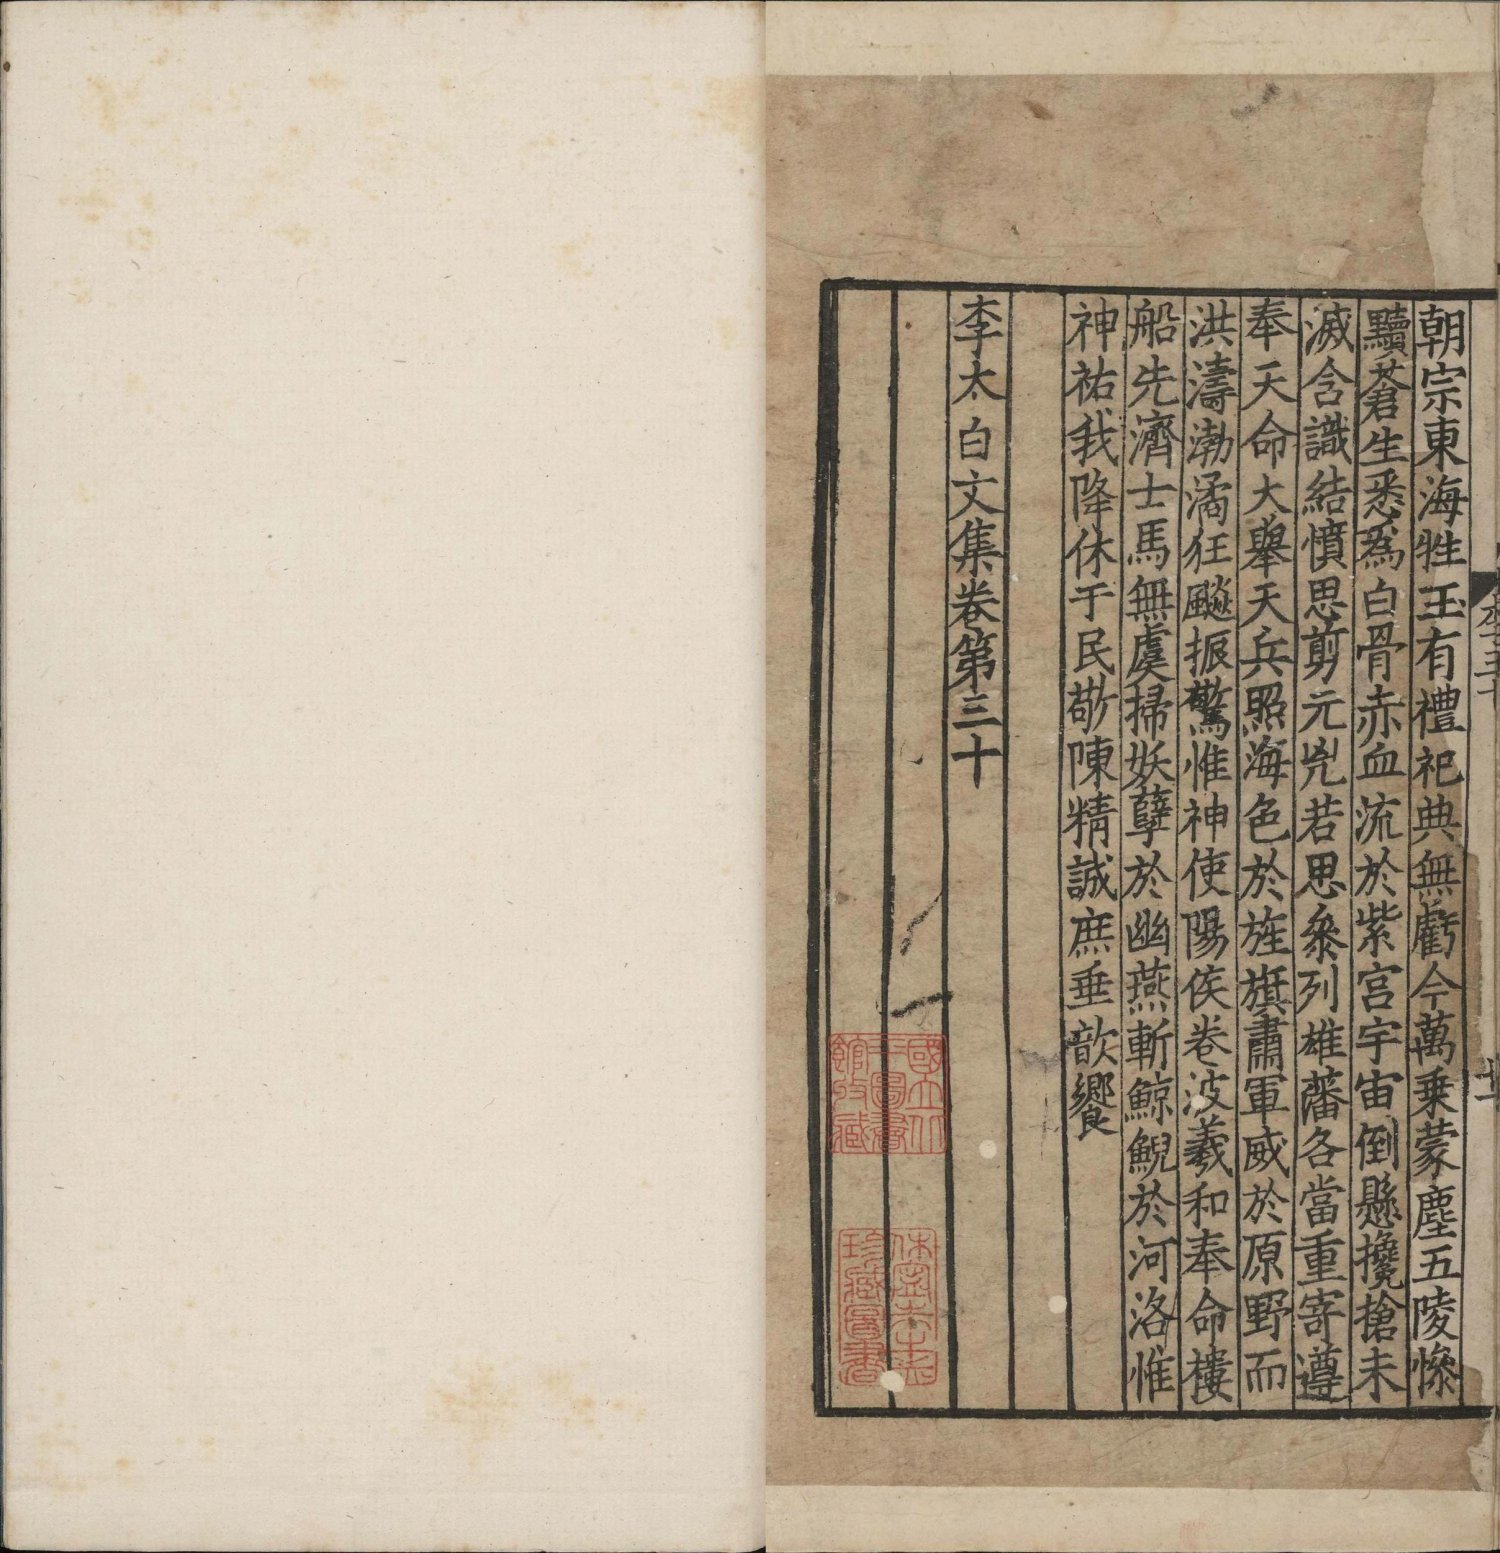 朝宗東海牲玉有禮祀典無虧今萬乗蒙塵五陵慘
黷蒼生悉爲白骨赤血流於紫宫宇宙倒懸攙搶未
滅含識結憤思剪元兇若思叅列雄藩各當重寄遵
奉天命大舉天兵照海色於旌旗肅軍威於原野而
洪濤渤潏狂飈振驚惟神使陽侯卷波羲和奉命樓
船先濟士馬無虞掃妖孽於幽燕斬鯨鯢於河洛惟
神祐我降休于民敬陳精誠庶垂歆饗
李太白文集卷第三十
國立北
平圖書
館收藏
珍藏圖書